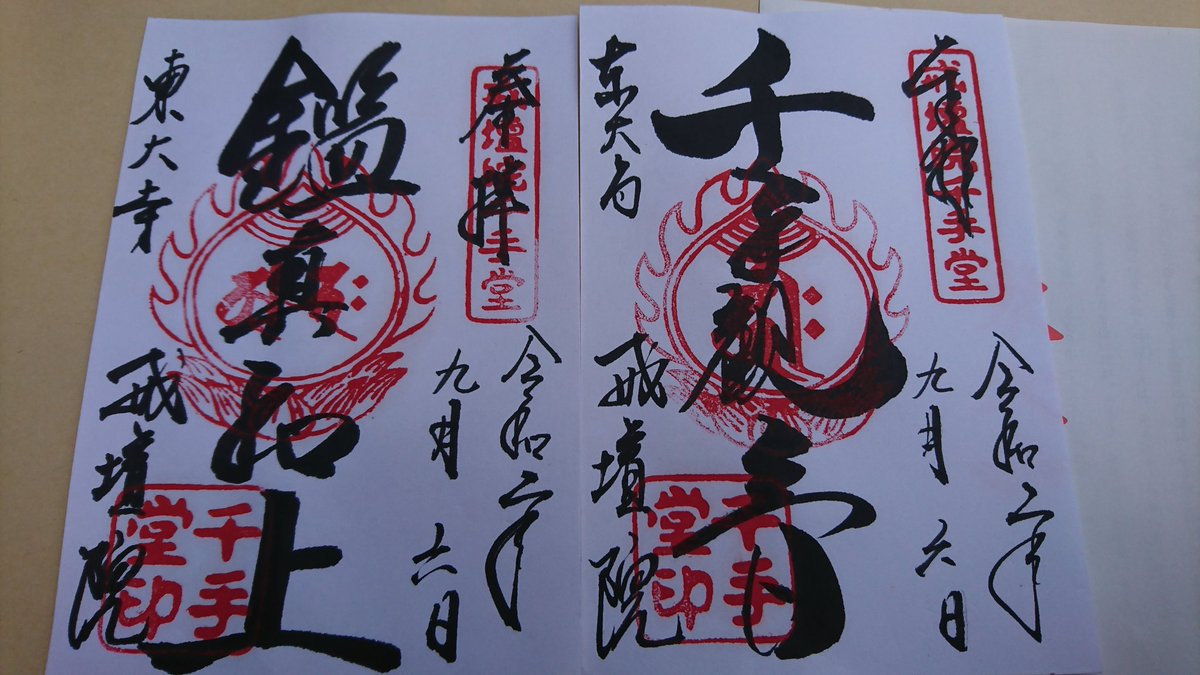 奉拝
戒壇院千手堂
令和二年
九月六日
千手観音
千手堂印
東大寺
戒壇院
奉拝
戒壇院千手堂
令和二年
九月六日
鑑真和上
千手堂印
東大寺
戒壇院